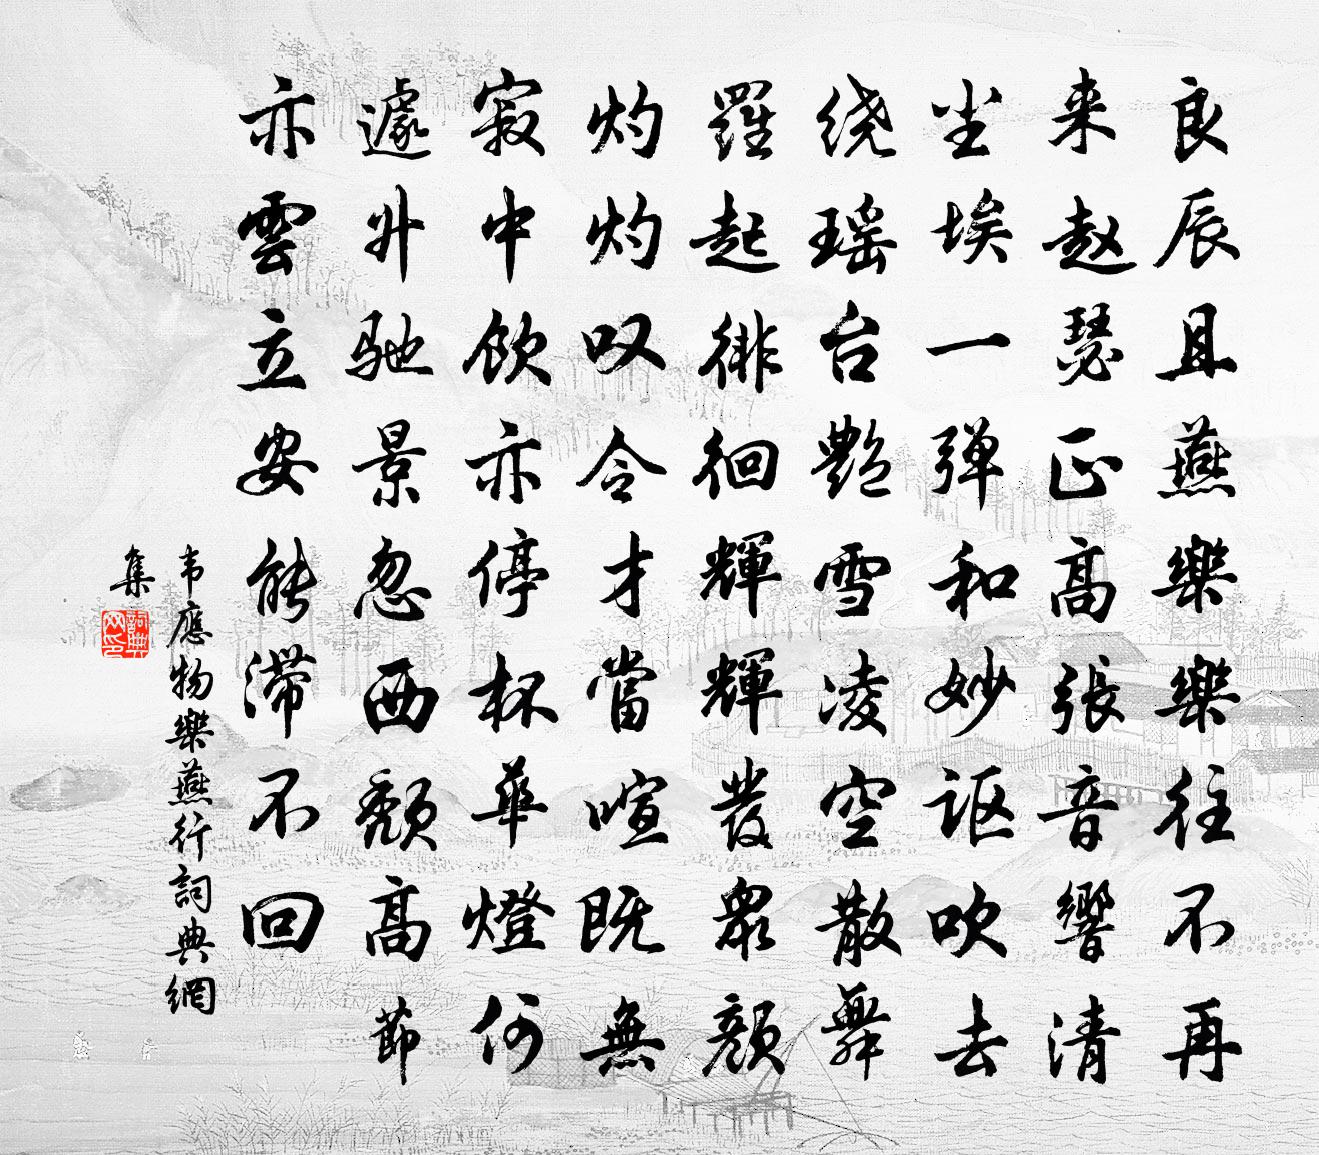 良辰且燕樂樂往不再
来赵瑟正高張音響清
尘埃一弹和妙讴吹去
绕瑶台艷雪凌空散舞
羅起徘徊輝輝發眾顏
灼灼叹令才當喧既無
寂中飲亦停杯華燈何
遽升驰景忽西颓高節
亦雲立安能滞不回
韦應物樂燕行詞典網
集
詞典网印